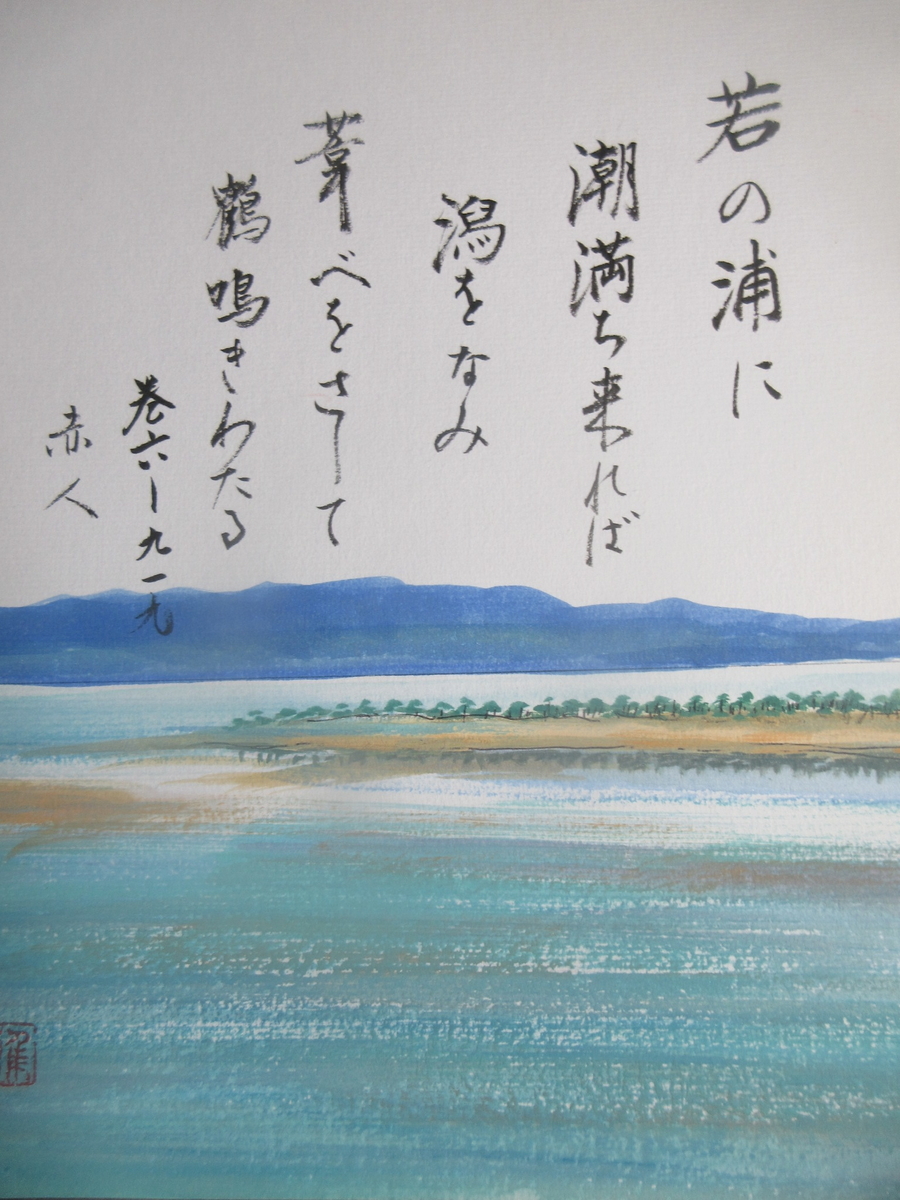 若の浦に
潮満ち来れば
潟をなみ
葦べをさして
鶴鳴きわたる
巻六ー九一九
赤人